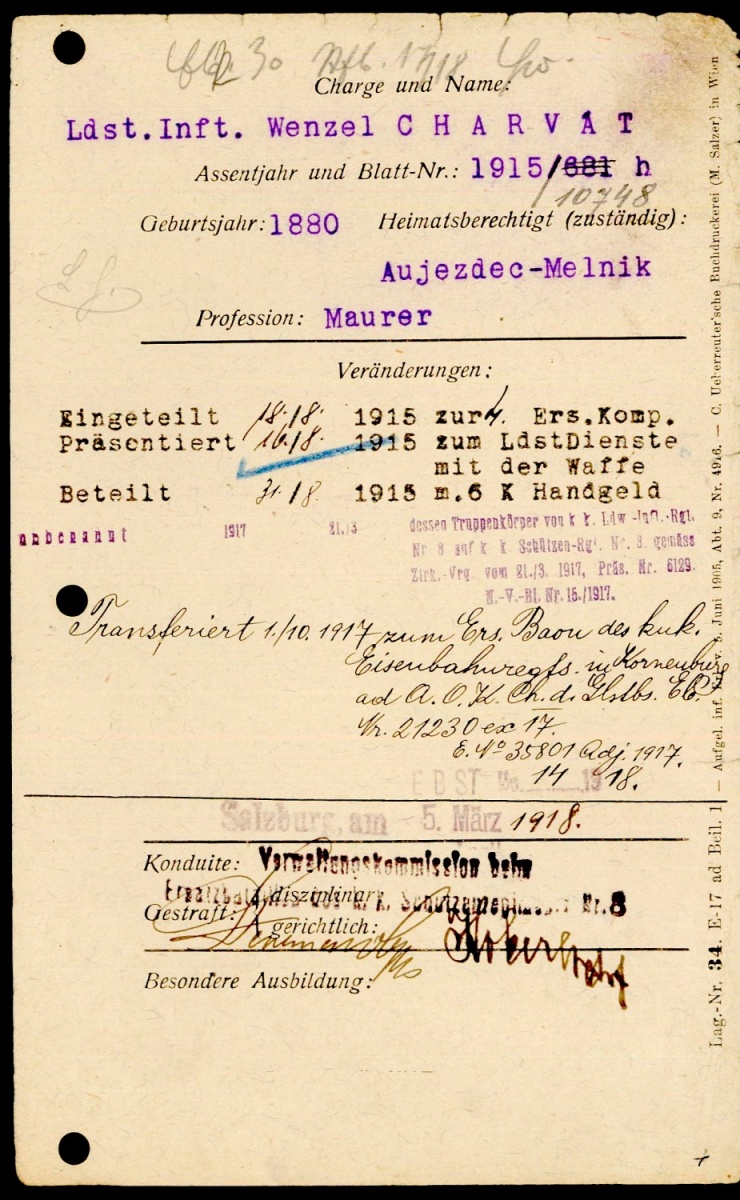 30
Charge und Name:
Ldst.Inft. Wenzel CHARVÁT
Assentjahr und Blatt-Nr.: 1915/681 h
10748
Geburtsjahr: 1880 Heimatsberechtigt (zuständig):
Aujezdec-Melnik
Profession: Maurer
Veränderungen:
Eingeteilt 18./8. 1915 zur 4. Ers.Komp.
Präsentiert 16./8. 1915 zum LdstDienste
mit der Waffe
Beteilt 31./8. 1915 m.6 K Handgeld
unbenannt 1917 21./3 dessen Truppenkörper von k k. Ldw.-Inft.-Rgt.
Nr 8 auf k. k. Schützen-Rgt. Nr. 8. gemäss
Zirk.-Vrg. vom 21./3. 1917, Präs. Nr. 6129.
N.-V.-Bl. Nr. 15./1917.
Transferiert 1./10. 1917 zum Ers. Baon des kuk.
Eisenbahnregts. in Korneuburg
ad A.O.K. Ch. d. Glstbs. EB.
Nr. 21230 ex 17.
E. No 35801 Adj. 1917.
EBST No. 14 1918.
Salzburg, am 5. März 1918.
Konduite: Verwaltungskommission beim
Ersatzbataillon des k. k. Schützenregiments Nr. 8
Gestraft: disziplinar:
gerichtlich:
Besondere Ausbildung:
Lag.-Nr. 34. E-17 ad Beil. 1 — Aufgel. inf. v. 5. Juni 1905, Abt. 9, Nr. 4916. — C. Ueberreuter'sche Buchdruckerei (M. Salzer) in Wien